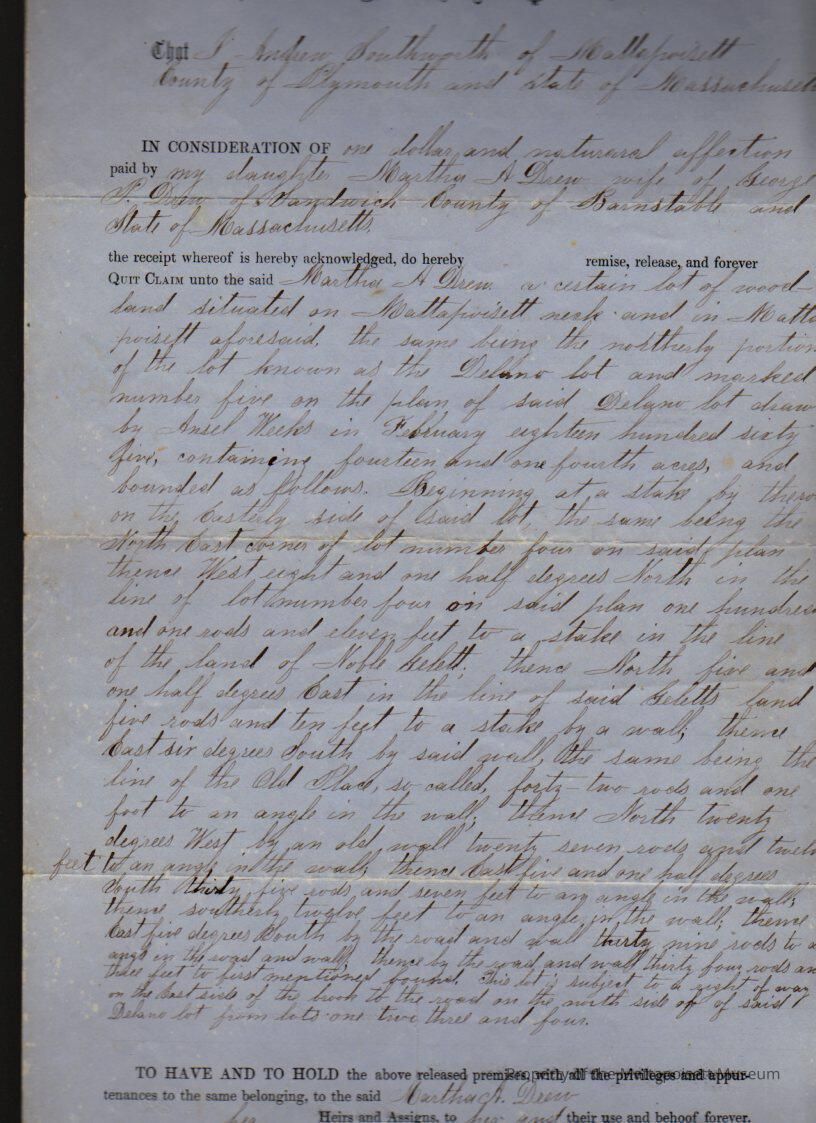 That I Andrew Southworth of Mattapoisett
County of Plymouth and State of Massachusetts
IN CONSIDERATION OF one dollar and naturaral affection
paid by my daughter Martha A Drew wife of George
P. Drew of Sandwich County of Barnstable and
State of Massachusetts,
the receipt whereof is hereby acknowledged, do hereby remise, release, and forever
QUIT CLAIM unto the said Martha A Drew a certain lot of wood-
land situated on Mattapoisett neck and in Matta
poisett aforesaid, the same being the northerly portion
of the lot known as the Delano lot and marked
number five on the plan of said Delano lot draw
by Ansel Weeks in February eighteen hundred sixty
five, containing fourteen and one fourth acres, and
bounded as follows. Beginning at a stake by the
on the Easterly side of said lot, the same being the
North East corner of lot number four on said plan
thence West eight and one half degrees North in the
line of lot number four on said plan one hundred
and one rods and eleven feet to a stake in the line
of the land of Noble Gelett, thence North five and
one half degrees East in the line of said Geletts land
five rods and ten feet to a stake by a wall; thence
East six degrees South by said wall, the same being the
line of the Old Place, so called, forty-two rods and one
foot to an angle in the wall; thence North twenty
degrees West by an old wall twenty seven rods and twelve
feet to an angle in the wall; thence East five and one half degrees
South thirty five rods and seven feet to an angle in the wall;
thence southerly twelve feet to an angle in the wall; thence
East five degrees South by the road and wall thirty nine rods to a
angle in the road and wall; thence by the road and wall thirty four rods and
three feet to first mentioned bound. This lot is subject to a right of way
on the East side of the brook to the road on the north side of of said
Delano lot from lots one two three and four.
TO HAVE AND TO HOLD the above released premises, with all the privileges and appur-
Property of the Mattapoisett Museum
tenances to the same belonging, to the said Martha A. Drew
her Heirs and Assigns, to her and their use and behoof forever.